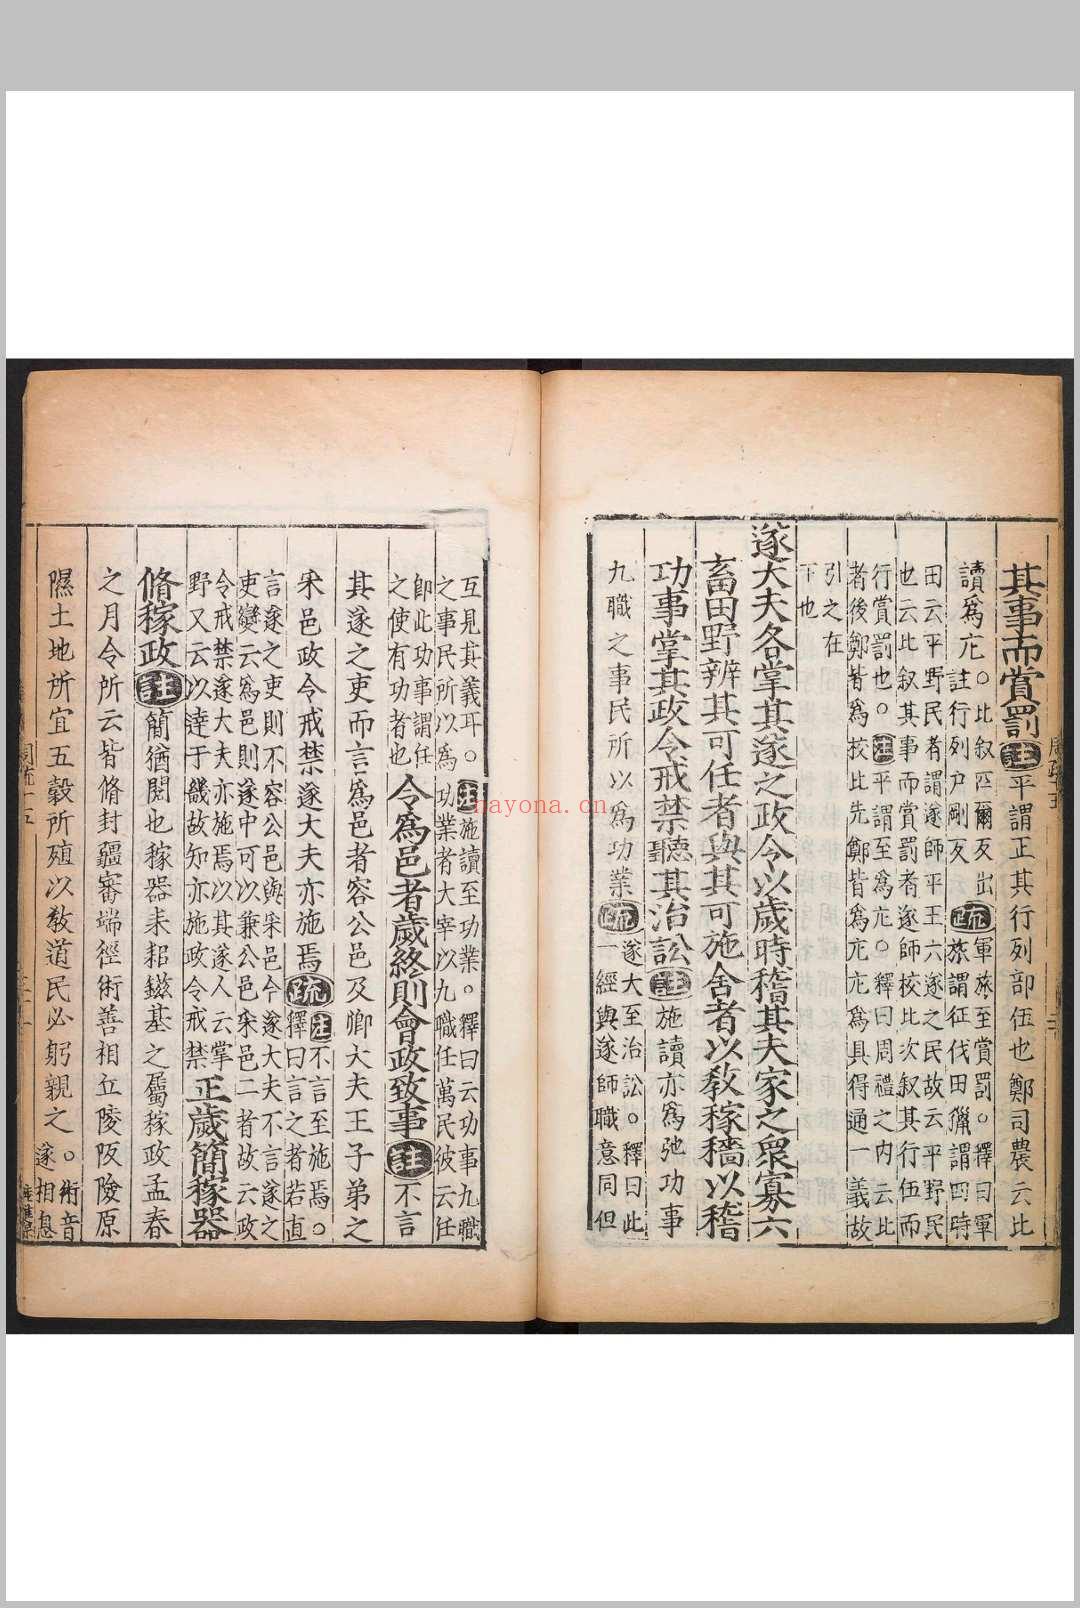 其事而賞罰註平謂正其行列部伍也鄭司農云比
讀爲庀○比叙匹爾反出
註行列戸剛反
疏軍旅至賞罰○釋曰軍
旅謂征伐田獵謂四時
田云平野民者謂遂師平王六遂之民故云平野民
也云比叙其事而賞罰者遂師校比次叙其行伍而
行賞罰也○註平謂至爲庀○釋曰周禮之内云比
者後鄭皆爲校比先鄭皆爲庀庀爲具得通一義故
引之在
下也
遂大夫各掌其遂之政令以歲時稽其夫家之衆寡六
畜田野辨其可任者與其可施舍者以敎稼穡以稽
功事掌其政令戒禁聽其治訟註施讀亦爲弛功事
九職之事民所以爲功業疏遂大至治訟○釋曰此
一經與遂師職意同但
互見其義耳○註施讀至功業○釋曰云功事九職
之事民所以爲功業者大宰以九職任萬民彼云任
即此功事謂任
之使有功者也
令爲邑者歲終則會政致事註不言
其遂之吏而言爲邑者容公邑及卿大夫王子弟之
采邑政令戒禁遂大夫亦施焉疏註不言至施焉○
釋曰言之者若直
言遂之吏則不容公邑與采邑今遂大夫不言遂之
吏變云爲邑則遂中可以兼公邑采邑二者故云政
令戒禁遂大夫亦施焉以其遂人云掌
野又云以達于畿故知亦施政令戒禁
正歲簡稼器
脩稼政註簡猶閱也稼器耒耜鎡基之屬稼政孟春
之月令所云皆脩封疆審端徑術善相丘陵阪險原
隰土地所宜五穀所殖以敎道民必躬親之○術音
遂相息
nayona.cn